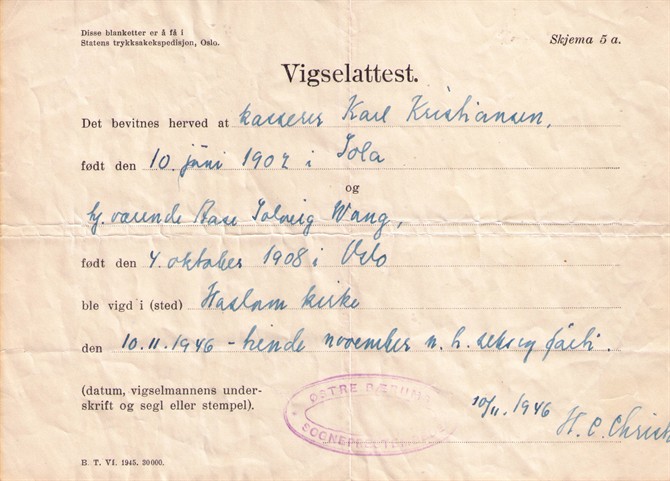 Disse blanketter er å få i
Statens trykksakekspedisjon, Oslo.
Skjema 5 a.
Vigselattest.
Det bevitnes herved at kasserer Karl Kristiansen,
født den 10. juni 1902 i Sola
og
hj. værende Aase Solveig Wang,
født den 4. oktober 1908 i Oslo
ble vigd i (sted) Haslum kirke
den 10.11.1946 - tiende november n. h. seks og førti.
(datum, vigselmannens under-
skrift og segl eller stempel).
ØSTRE BÆRUM
10/11. 1946
H. C. Christ
B. T. VI. 1945. 30 000.